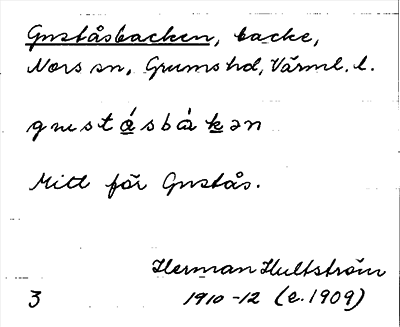 Guståsbacken, backe,
Nors sn, Grums hd, Värml. l.
gustǻsbàkən
Mitt för Gustås.
Herman Hultström
3 1910-12 (e. 1909)